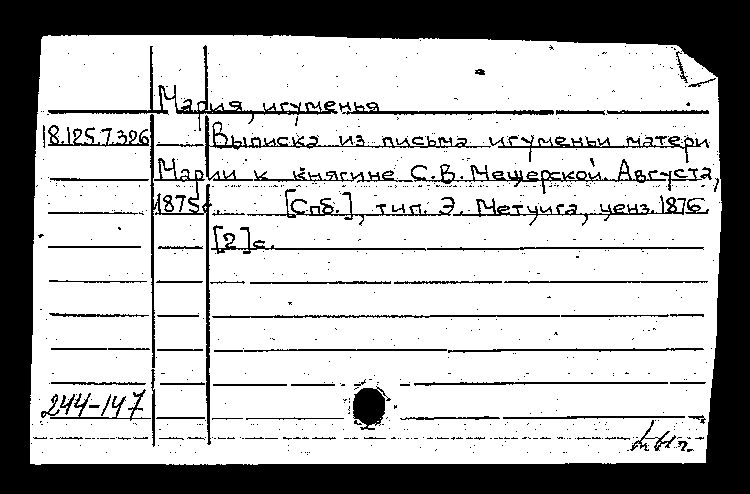 Мария, игуменья
18.125.7.326 Выписка из письма игуменьи матери
Марии к княгине С.В. Мещерской. Августа,
1875г. [Спб.], тип. Э. Метцига, ценз. 1876.
[2] с.
244-147